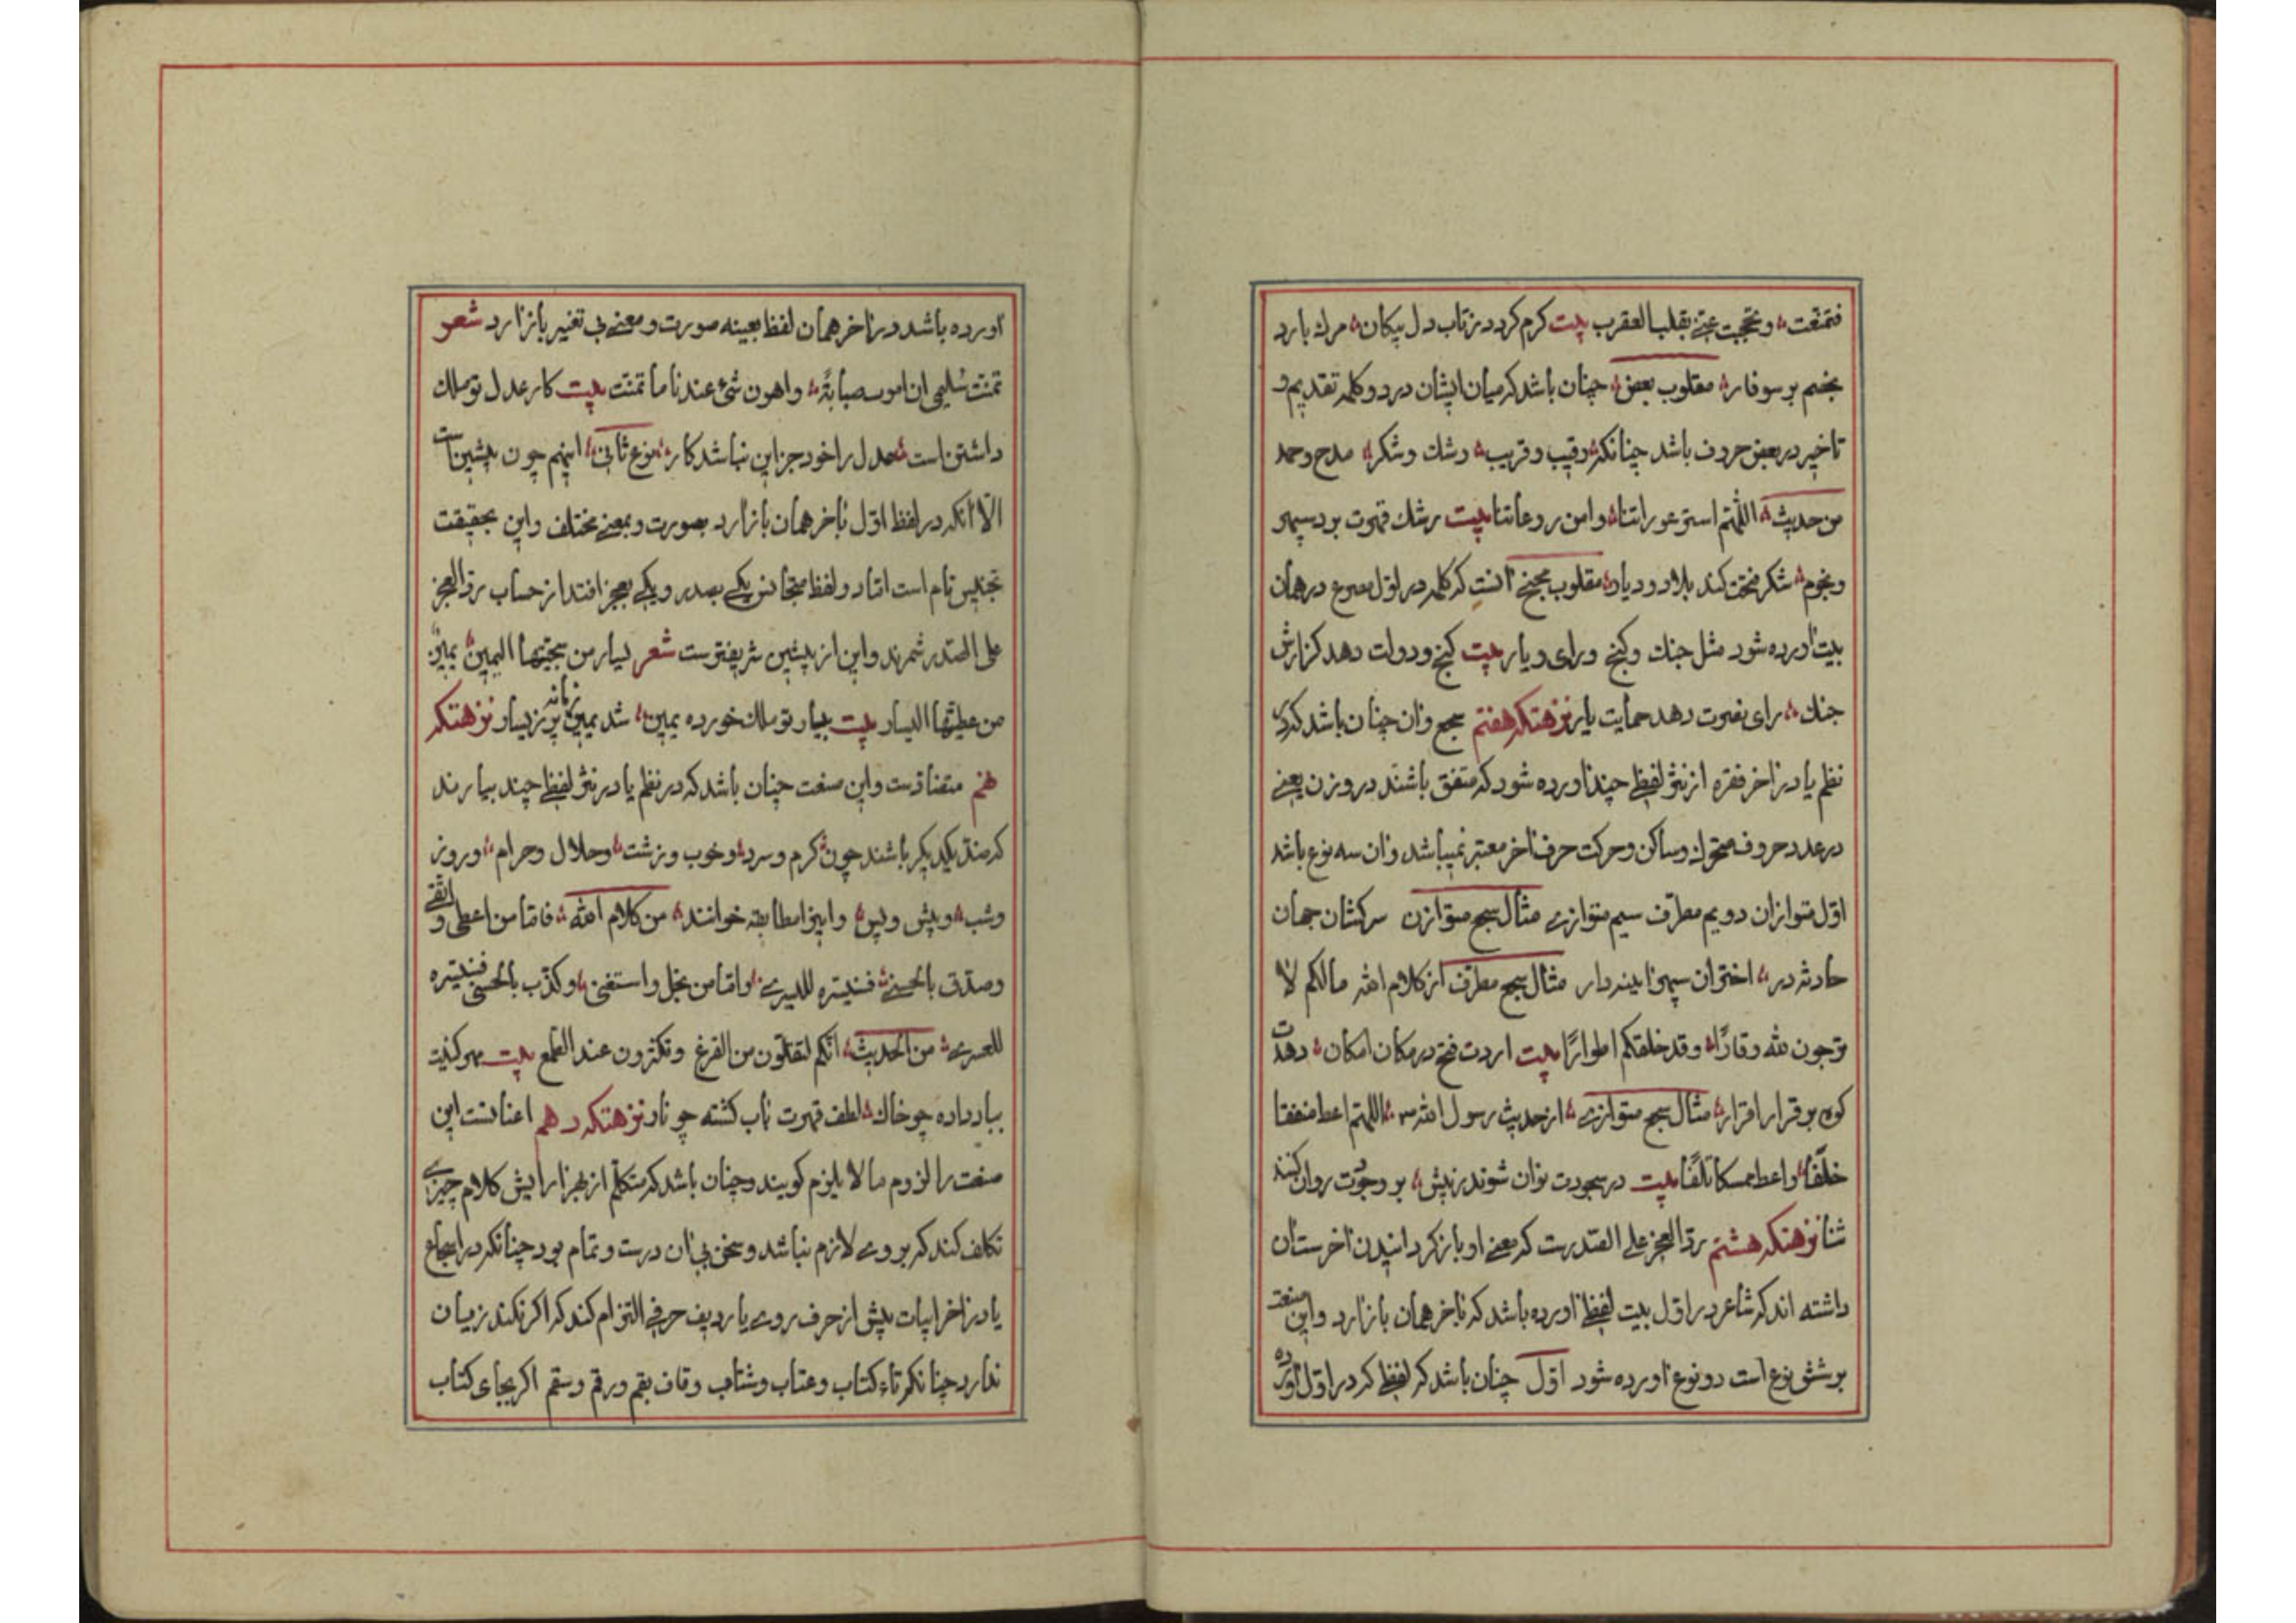 فتمنعت و تحجبت عنی بقلب العقرب بیت کرم کردد زتاب دل پیکان مرك بارد
بخصم بر سوفار مقلوب بعض چنان باشد که میان ایشان در دو کلمه تقدیم و
تاخیر در بعض حروف باشد چنانکه رقیب و قریب و رشك و شکر مدح و حمد
من حدیث اللّهم استر عوراتنا وامن روعاتنا بیت رشك قهرت برد سپهر
و نجوم شکر فتحت کند بلاد و دیار مقلوب مجنح انست که کلمه در اول مصرع در همان
بیت اورده شود مثل جنك و کنج و رای و یار بیت کنج و دولت دهد کزارش
جنك رای نصرت دهد حمایت یار نزهتکه هفتم سجع و ان چنان باشد که در
نظم یا در اخر فقره از نثر لفظی چند اورده شود که متفق باشند در وزن یعنی
در عدد حروف متحرك و ساکن و حرکت حرف اخر معتبر نمیباشد و ان سه نوع باشد
اوّل متوازان دویم مطرّف سیم متوازی مثال سجع متوازن سرکشان جهان
حادثه در اختران سپهر اینه دار مثال سجع مطرّف از کلام الله مالکم لا
ترجون لله وقارًا وقد خلقکم اطوارًا بیت اردت فتح در مکان امکان دهدت
کوه بر قرار اقرار مثال سجع متوازی از حدیث رسول الله ص اللهمّ اعط منفقا
خلفًا واعط ممسکا تلفًا بیت در سجودت نوان شوند ز پیش بر وجودت روان کنند
ثنا نزهتکه هشتم ردّ العجز علی الصّدرست که معنی او باز کردانیدن اخرست ان
داشته اند که شاعر در اوّل بیت لفظی اورده باشد که باخر همان بازارد و این صنعت
بر شش نوع است دو نوع اورده شود اوّل چنان باشد که لفظی که در اوّل اورده
اورده باشد در اخر همان لفظ بعینه صورت و معنی بی تغییر بازارد شعر
تمنّت سُلیمی ان اموت صبابةً واهون شیء عندنا ما تمنّت بیت کار عدل تو ملك
داشتن است عدل را خود جز این نباشد کار نوع ثانی اینهم چون پیشین است
الّا انکه در لفظ اوّل باخر همان بازارد بصورت و بمعنی مختلف و این بحقیقت
تجنیس تام است امّا دو لفظ متجانس یکی بصدر و یکی بعجز افتد از حساب ردّ العجز
علی الصّدر شمرند و این از پیشین شریفترست شعر یسار من سجیّتها الیمین یمین
من عطیّتها الیسار بیت بیسار تو ملك خورده یمین شد یمین زمانه پر ز یسار نزهتکه
نهم متضادست و این صنعت چنان باشد که در نظم یا در نثر لفظی چند بیارند
که ضدّ یکدیکر باشند چون کرم و سرد و خوب و زشت و حلال و حرام و روز
و شب و پیش و پس و اینرا مطابقه خوانند من کلام الله فامّا من اعطی و اتّقی
وصدّق بالحسنی فسنیسّره للیسری وامّا من بخل واستغنی وکذّب بالحسنی فسنیسّره
للعسری من الحدیث انّکم لتقلّون من الفزع وتکثرون عند الطّمع بیت مهر کینت
بباد داده چو خاك لطف قهرت باب کشته چو نار نزهتکه دهم اعناتست این
صنعت را لزوم ما لا یلزم کویند و چنان باشد که متکلّم از بهر ارایش کلام چیزی
تکلف کند که بر وی لازم نباشد و سخن بی ان درست و تمام بود چنانکه در اسجاع
یا در اخر ابیات پیش از حرف روی یا ردیف حرفی التزام کند که اکر نکند زیان
ندارد چنانکه تاء کتاب و عتاب و شتاب و قاف بقم و رقم و سقم اکر بجای کتاب